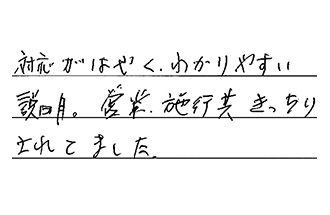 対応がはやく、わかりやすい
説明。営業、施行共きっちり
されてました。